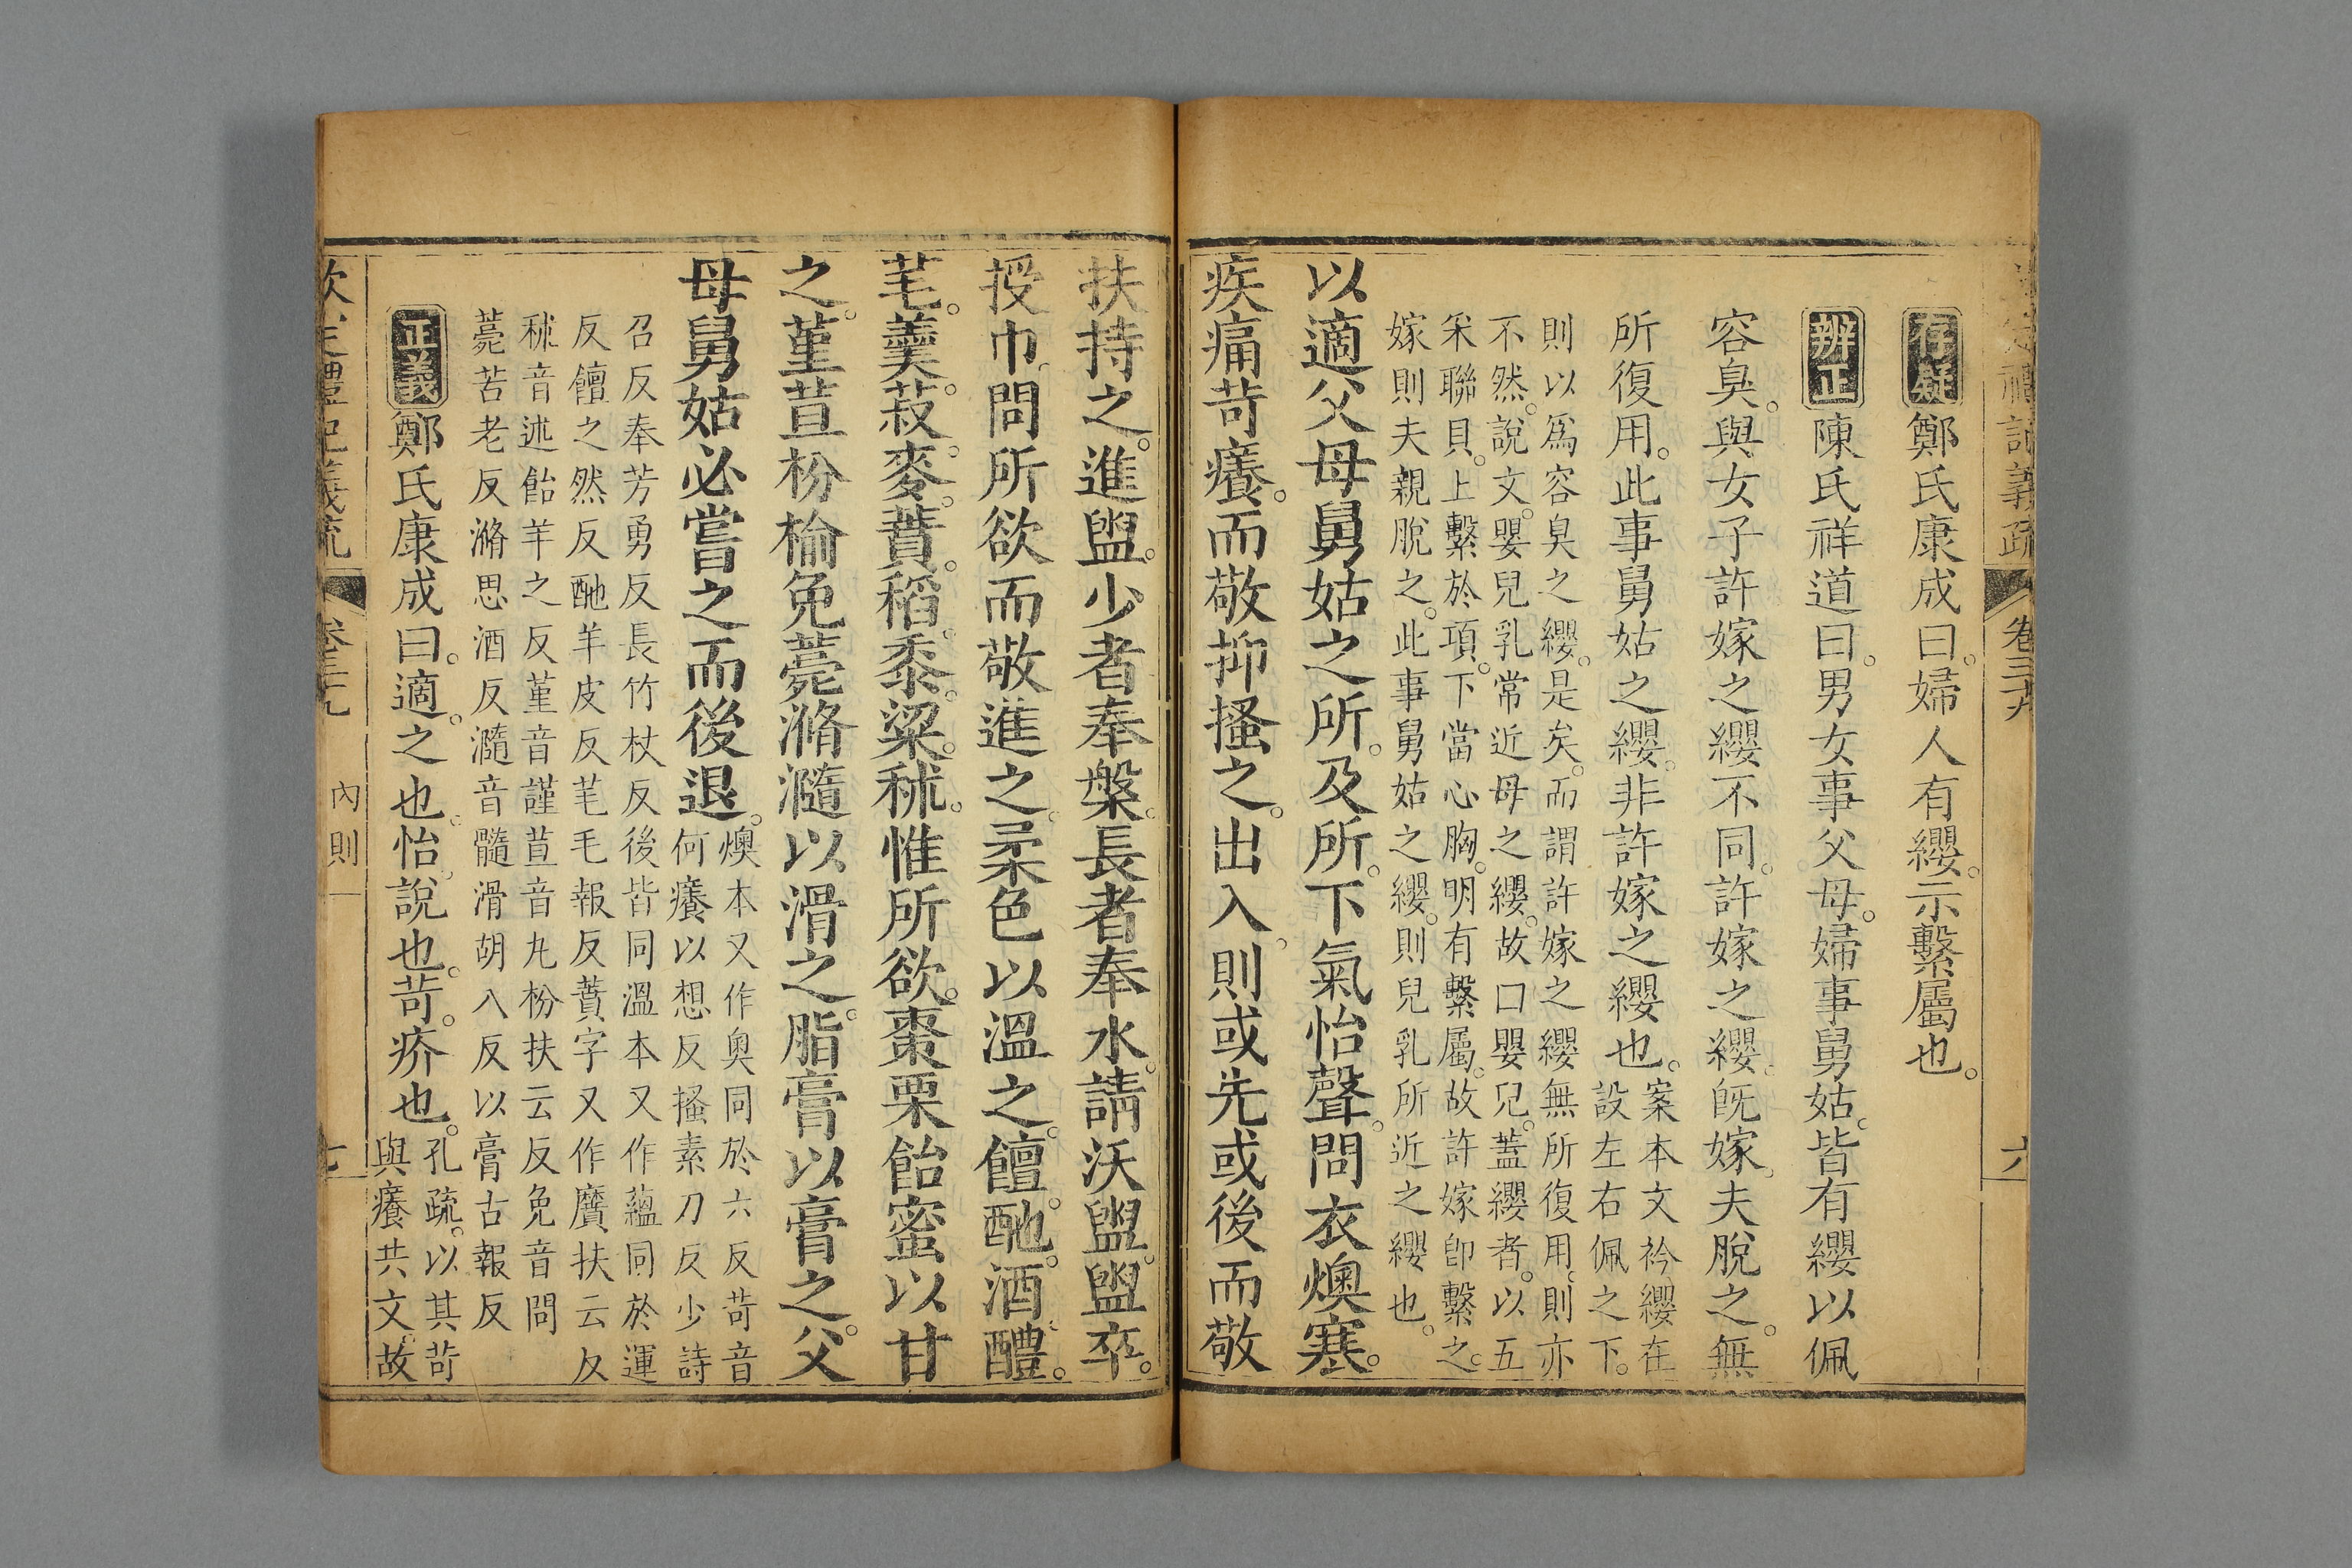 定禮記義疏 卷三十九 六
存疑鄭氏康成曰。婦人有纓。示繫屬也。
辨正陳氏祥道曰。男女事父母。婦事舅姑。皆有纓以佩
容臭。與女子許嫁之纓不同。許嫁之纓。旣嫁。夫脫之。無
所復用。此事舅姑之纓。非許嫁之纓也。
案本文衿纓在
設左右佩之下。
則以爲容臭之纓。是矣。而謂許嫁之纓無所復用。則亦
不然。說文。嬰兒乳常近母之纓。故口嬰兒。蓋纓者。以五
采聯貝。上繫於項。下當心胸。明有繫屬。故許嫁卽繫之。
嫁則夫親脫之。此事舅姑之纓。則兒乳所近之纓也。
以適父母舅姑之所。及所。下氣怡聲。問衣燠寒。
疾痛苛癢。而敬抑搔之。出入。則或先或後而敬
扶持之。進盥。少者奉槃。長者奉水。請沃盥。盥卒。
授巾。問所欲而敬進之。柔色以溫之。饘。酏。酒。醴。
芼。羹。菽。麥。蕡。稻。黍。粱。秫。惟所欲。棗栗飴蜜以甘
之。堇荁枌榆免薧滫瀡以滑之。脂膏以膏之。父
母舅姑必嘗之而後退。
燠本又作奥同於六反苛音
何癢以想反搔素刀反少詩
召反奉芳勇反長竹杖反後皆同溫本又作蘊同於運
反饘之然反酏羊皮反芼毛報反蕡字又作黂扶云反
秫音述飴羊之反堇音謹荁音丸枌扶云反免音問
薧苦老反滫思酒反瀡音髓滑胡八反以膏古報反
正義鄭氏康成曰。適。之也。怡。說也。苛。疥也。
孔疏。以其苛
與癢共文。故
欽定禮記義疏 卷三十九 內則 七